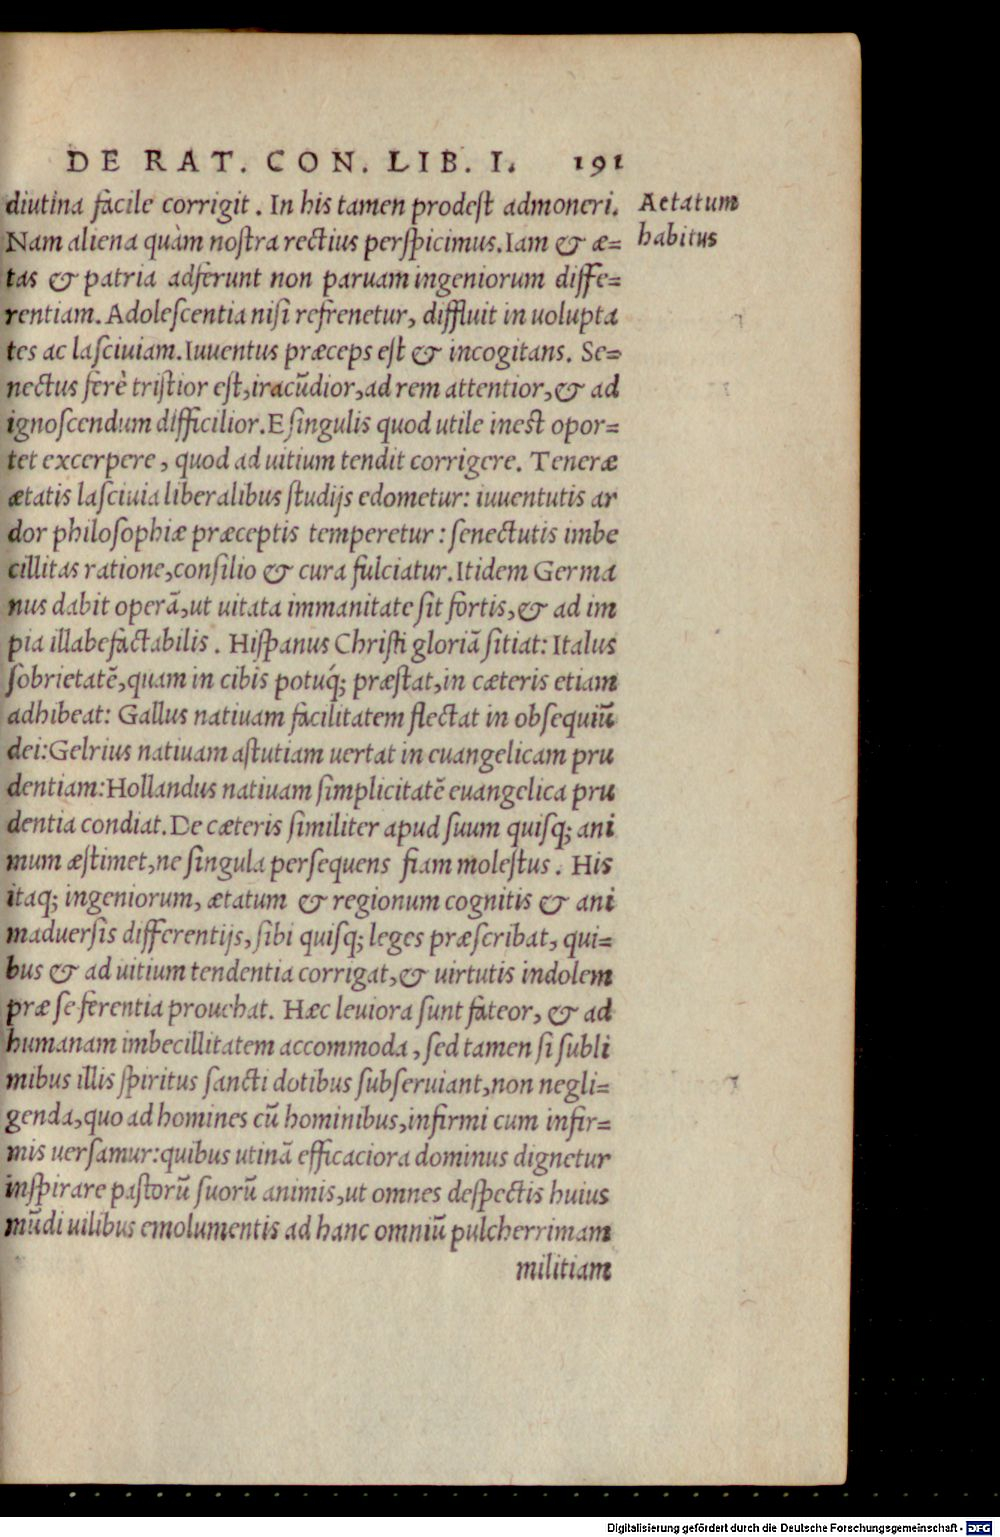 DE RAT. CON. LIB. I. 191
diutina facile corrigit. In his tamen prodest admoneri.
Aetatum
habitus
Nam aliena quàm nostra rectius perspicimus. Iam & æ=
tas & patria adferunt non paruam ingeniorum diffe=
rentiam. Adolescentia nisi refrenetur, diffluit in uolupta
tes ac lasciuiam. Iuuentus præceps est & incogitans. Se=
nectus ferè tristior est, iracũdior, ad rem attentior, & ad
ignoscendum difficilior. E singulis quod utile inest opor=
tet excerpere, quod ad uitium tendit corrigere. Teneræ
ætatis lasciuia liberalibus studijs edometur: iuuentutis ar
dor philosophiæ præceptis temperetur: senectutis imbe
cillitas ratione, consilio & cura fulciatur. Itidem Germa
nus dabit operã, ut uitata immanitate sit fortis, & ad im
pia illabefactabilis. Hispanus Christi gloriã sitiat: Italus
sobrietatẽ, quam in cibis potuq́; præstat, in cæteris etiam
adhibeat: Gallus natiuam facilitatem flectat in obsequiũ
dei: Gelrius natiuam astutiam uertat in euangelicam pru
dentiam: Hollandus natiuam simplicitatẽ euangelica pru
dentia condiat. De cæteris similiter apud suum quisq; ani
mum æstimet, ne singula persequens fiam molestus. His
itaq; ingeniorum, ætatum & regionum cognitis & ani
maduersis differentijs, sibi quisq; leges præscribat, qui=
bus & ad uitium tendentia corrigat, & uirtutis indolem
præ se ferentia prouehat. Hæc leuiora sunt fateor, & ad
humanam imbecillitatem accommoda, sed tamen si subli
mibus illis spiritus sancti dotibus subseruiant, non negli=
genda, quo ad homines cũ hominibus, infirmi cum infir=
mis uersamur: quibus utinã efficaciora dominus dignetur
inspirare pastorũ suorũ animis, ut omnes despectis huius
mũdi uilibus emolumentis ad hanc omniũ pulcherrimam
militiam
Digitalisierung gefördert durch die Deutsche Forschungsgemeinschaft - DFG